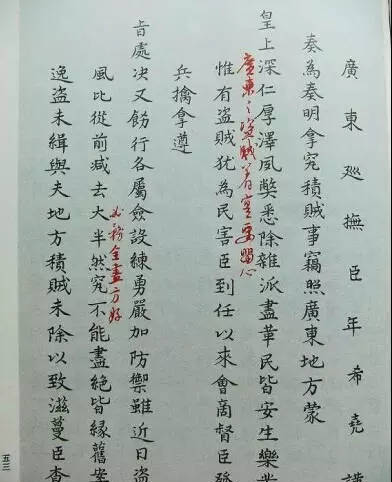 廣東廵撫臣年希堯謹
奏為奏明拿究積賊事竊照廣東地方蒙
皇上深仁厚澤風弊悉除雜派盡革民皆安生樂業
廣東之盜賊着實要留心
惟有盜賊犹為民害臣到任以來會商督臣
兵擒拿遵
旨處决又飭行各屬僉設練勇嚴加防禦雖近日盜
必務全盡方好
風比從前减去大半然究不能盡絕皆緣舊案
逸盜未緝與夫地方積賊未除以致滋蔓臣查
五三